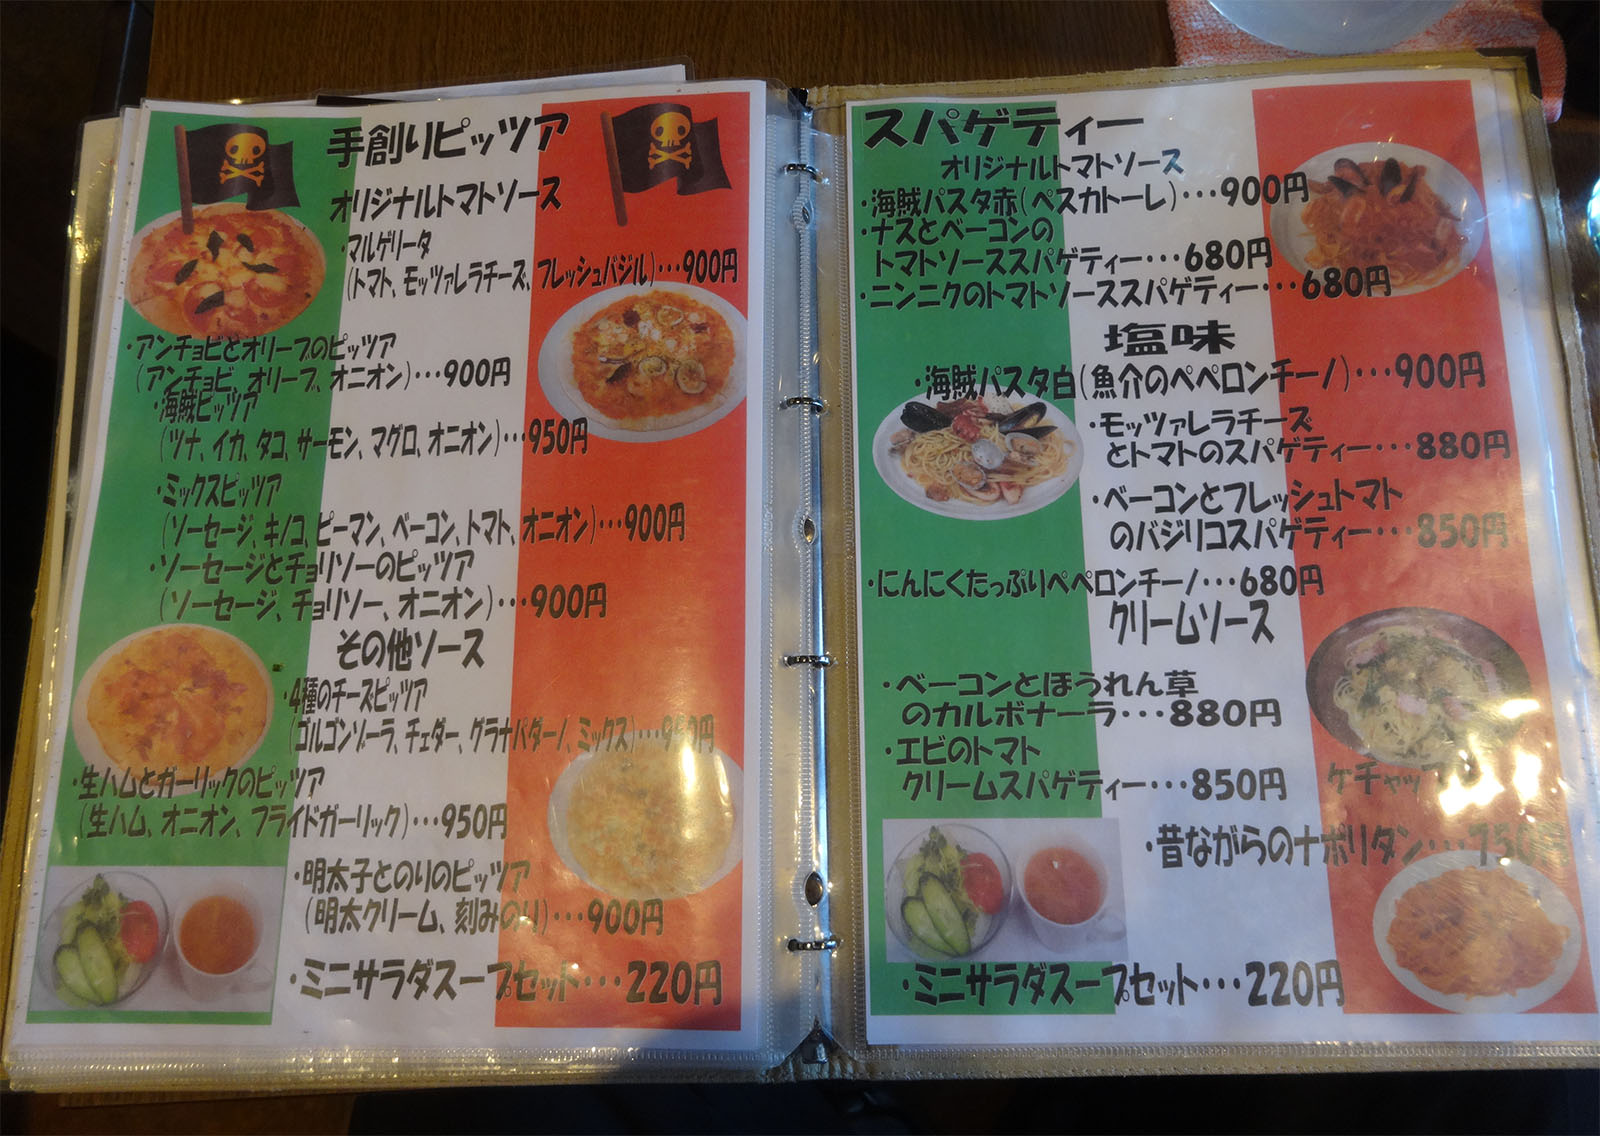 手創りピッツァ
オリジナルトマトソース
・マルゲリータ
(トマト、モッツァレラチーズ、フレッシュバジル)・・・900円
・アンチョビとオリーブのピッツァ
(アンチョビ、オリーブ、オニオン)・・・900円
・海賊ピッツァ
(ツナ、イカ、タコ、サーモン、マグロ、オニオン)・・・950円
・ミックスピッツァ
(ソーセージ、キノコ、ピーマン、ベーコン、トマト、オニオン)・・・900円
・ソーセージとチョリソーのピッツァ
(ソーセージ、チョリソー、オニオン)・・・900円
その他ソース
・4種のチーズピッツァ
(ゴルゴンゾーラ、チェダー、グラナパダーノ、ミックス)・・・950円
・生ハムとガーリックのピッツァ
(生ハム、オニオン、フライドガーリック)・・・950円
・明太子とのりのピッツァ
(明太クリーム、刻みのり)・・・900円
・ミニサラダスープセット・・・220円
スパゲティー
オリジナルトマトソース
・海賊パスタ赤(ペスカトーレ)・・・900円
・ナスとベーコンの
トマトソーススパゲティー・・・680円
・ニンニクのトマトソーススパゲティー・・・680円
塩味
・海賊パスタ白(魚介のペペロンチーノ)・・・900円
・モッツァレラチーズ
とトマトのスパゲティー・・・880円
・ベーコンとフレッシュトマト
のバジリコスパゲティー・・・850円
・にんにくたっぷりペペロンチーノ・・・680円
クリームソース
・ベーコンとほうれん草
のカルボナーラ・・・880円
・エビのトマト
クリームスパゲティー・・・850円
ケチャップ
・昔ながらのナポリタン・・・730円
・ミニサラダスープセット・・・220円